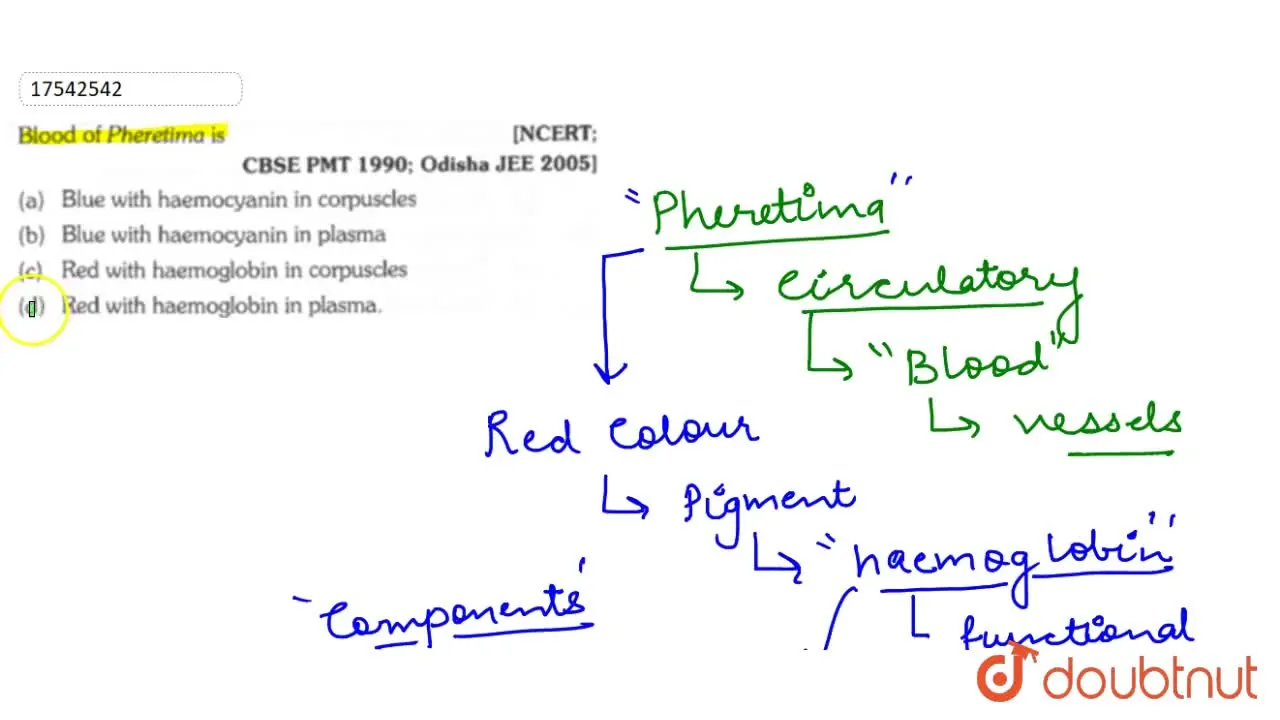 17542542
Blood of Pheretima is [NCERT;
CBSE PMT 1990; Odisha JEE 2005]
(a) Blue with haemocyanin in corpuscles
(b) Blue with haemocyanin in plasma
(c) Red with haemoglobin in corpuscles
(d) Red with haemoglobin in plasma.
"Pheretima"
Circulatory
"Blood"
vessels
Red Colour
Pigment
"haemoglobin"
functional
Components'
doubtnut